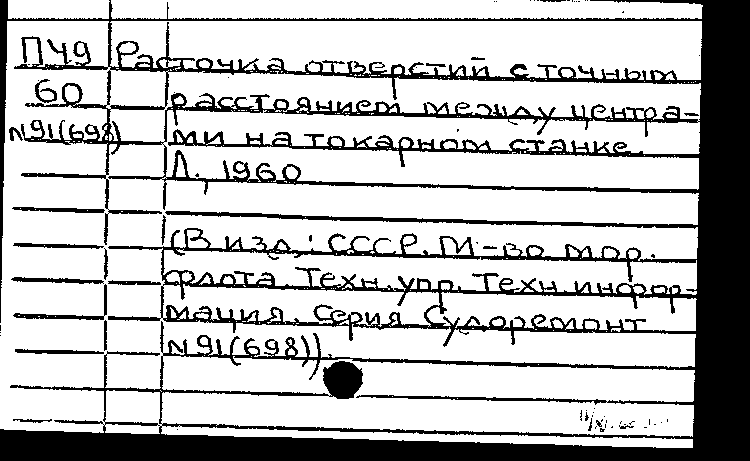 П49 Расточка отверстий с точным
60 расстоянием между центра=
N91(698) ми на токарном станке.
Л., 1960
(В изд.: СССР. М-во мор.
флота. Техн. упр. Техн. инфор-
мация. Серия Судоремонт
N91(698)).